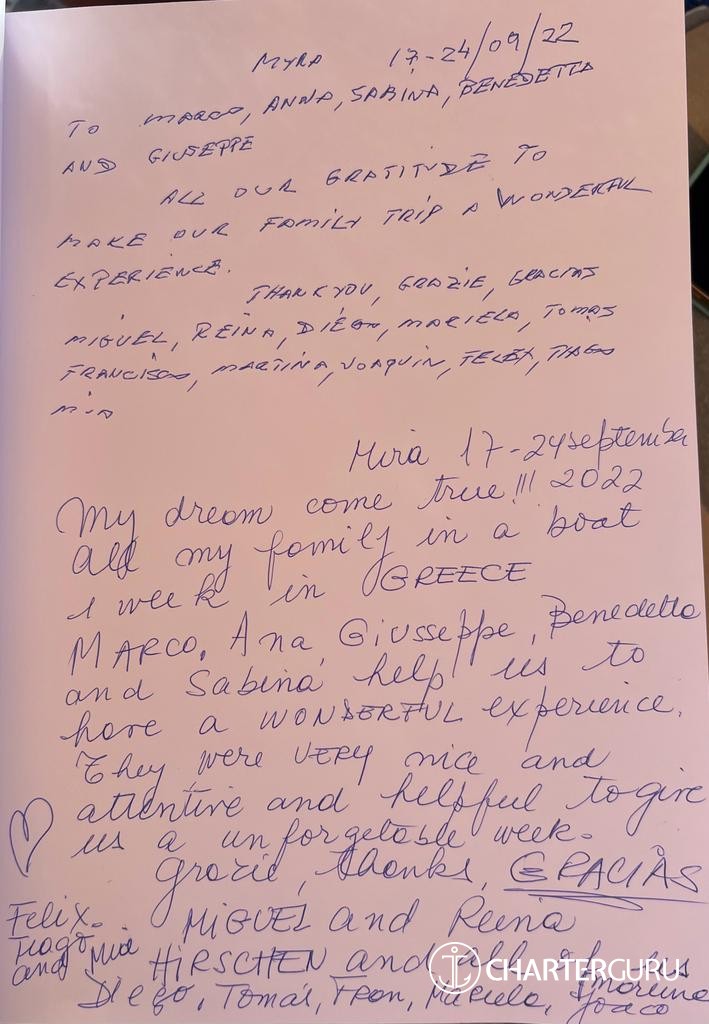 MYRA 17-24/09/22
TO MARCO, ANNA, SABINA, BENEDETTA
AND GIUSEPPE
ALL OUR GRATITUDE TO
MAKE OUR FAMILY TRIP A WONDERFUL
EXPERIENCE.
THANK YOU, GRAZIE, GRACIAS
MIGUEL, REINA, DIEGO, MARIELA, TOMAS
FRANCISCO, MARTINA, JOAQUIN, FELIX, TIAGO
MIA
Mira 17-24 september
My dream come true!!! 2022
All my family in a boat
1 week in GREECE
MARCO, Ana, Giusseppe, Benedetta
and Sabina help us to
have a WONDERFUL experience.
They were VERY nice and
attentive and helpful to give
us a unforgetable week.
Grazie, thanks, GRACIAS
Felix. MIGUEL and Reina
Tiago and Mia
HIRSCHEN and all of us
Diego, Tomas, Fran, Mariela,
Joaco
CHARTERGURU